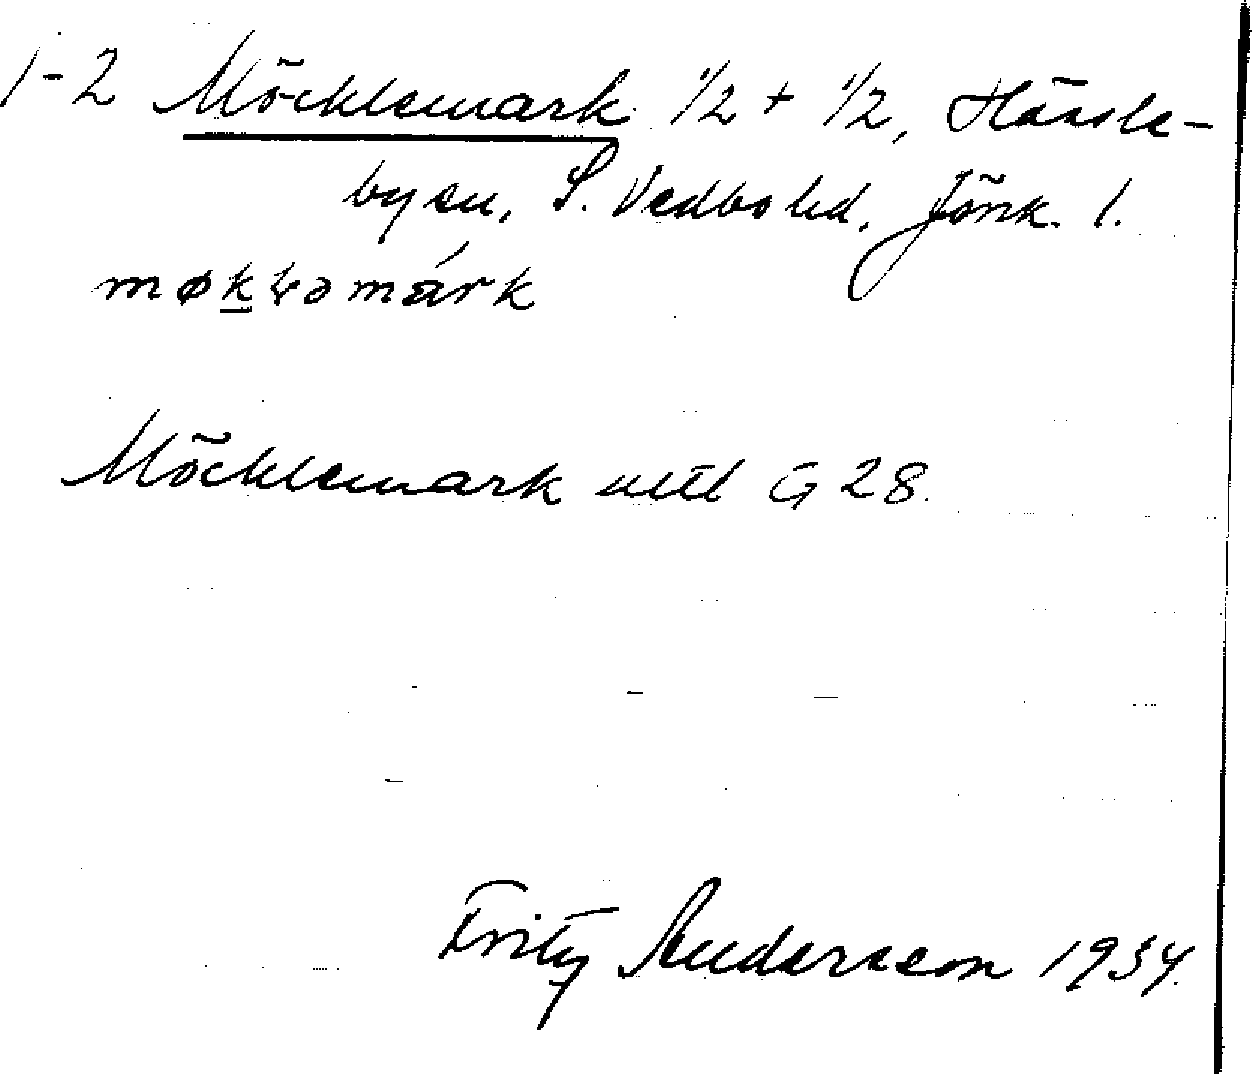 1-2 Möcklemark 1/2 + 1/2, Hässle-
by sn, S. Vedbo hd, Jönk. l.
møkɬəmárk
Möcklemark G 28.
Fritz Andersson 1934.